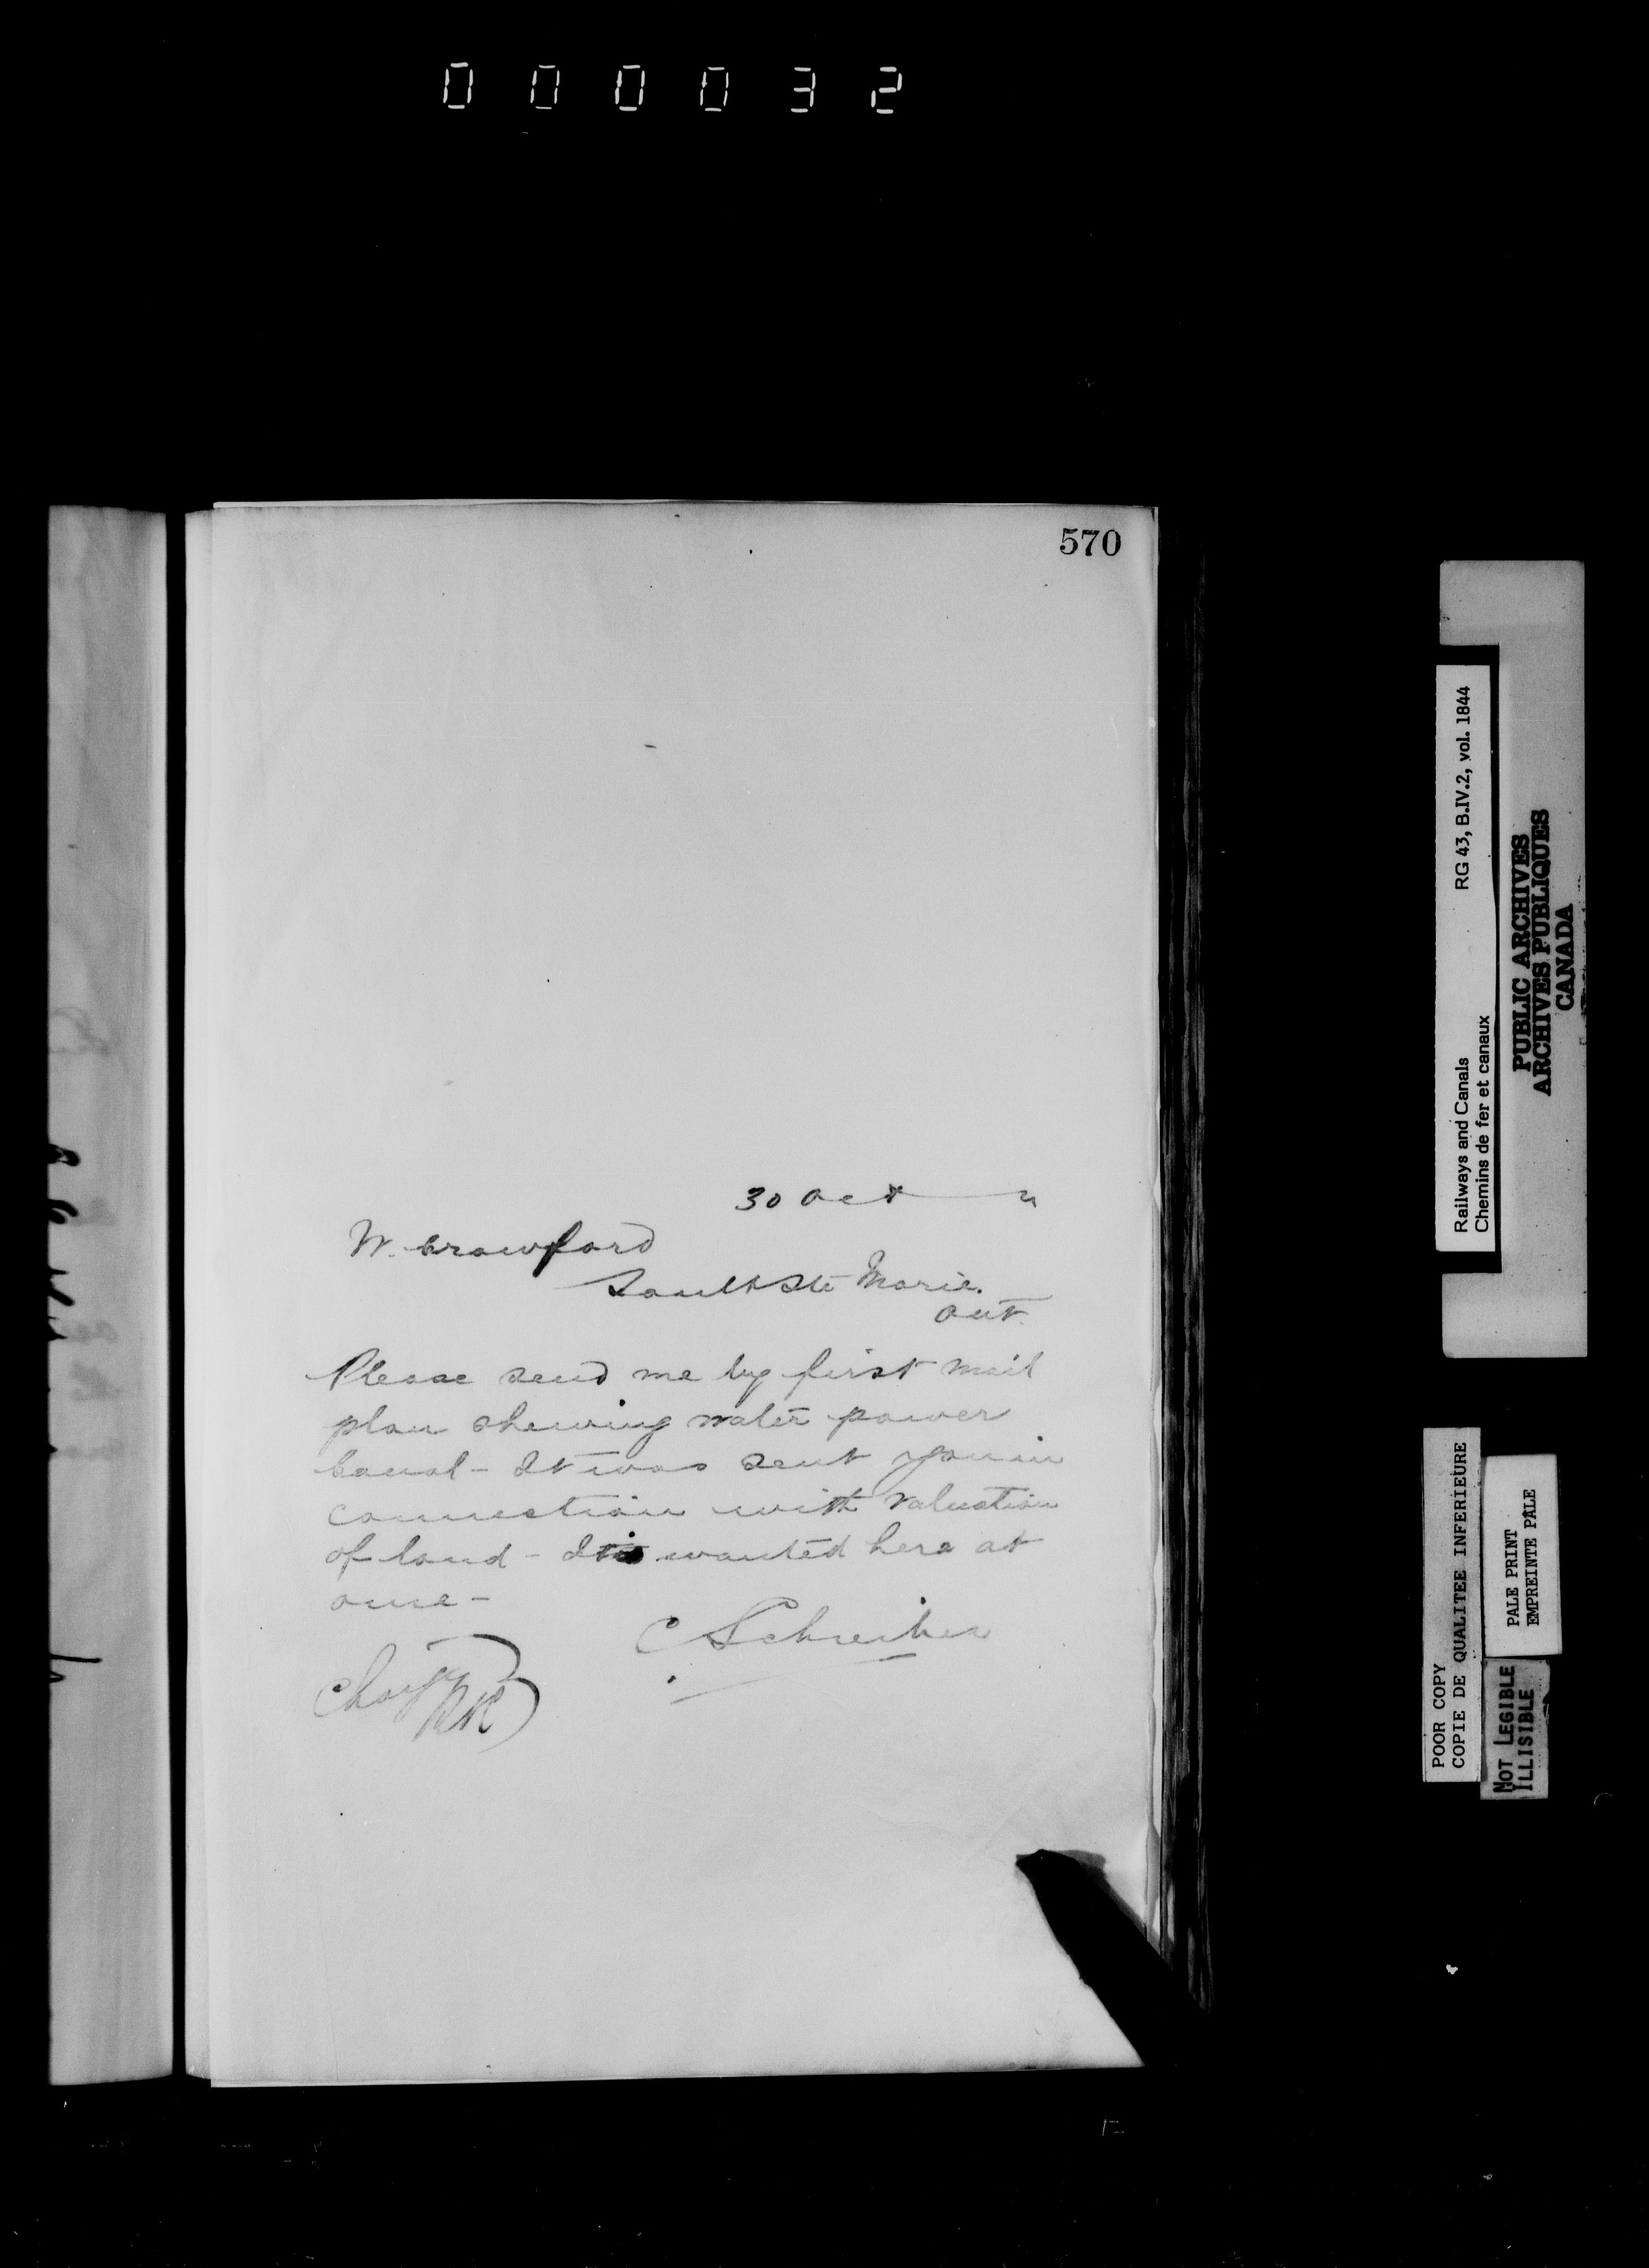 000032
570
30 Oct
W. Crawford
Sault Ste Marie.
Ont.
Please send me by first mail
plan shewing water power
Canal - It was sent you in
connection with valuation
of land - It is wanted here at
once -
C Schreiber
Charge
Railways and Canals RG 43, B.IV.2, vol. 1844
Chemins de fer et canaux
PUBLIC ARCHIVES
ARCHIVES PUBLIQUES
CANADA
POOR COPY
COPIE DE QUALITEE INFERIEURE
PALE PRINT
EMPREINTE PALE
NOT LEGIBLE
ILLISIBLE